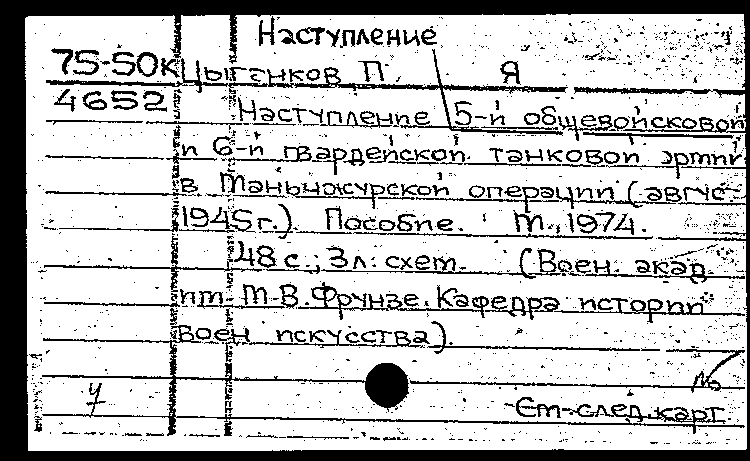 Наступление
75-50к Цыганков П. Я
4652 Наступление 5-й общевойсковой
и 6-й гвардейской танковой армии
в Маньчжурской операции (авгус-
1945 г.). Пособие. М., 1974.
48 с.; 3 л. схем. (Воен. акад.
им. М.В. Фрунзе. Кафедра истории
воен искусства).
№
См. след. карт